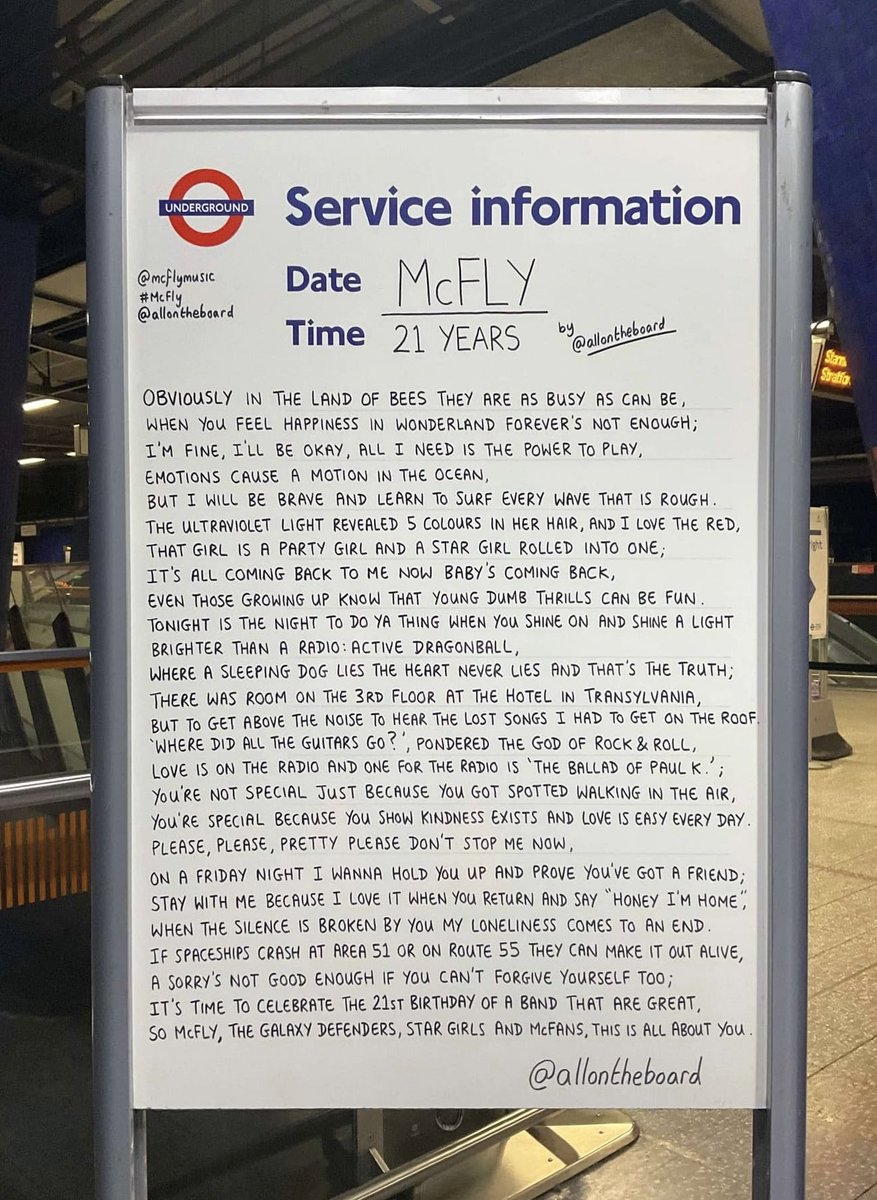 UNDERGROUND
Service information
@mcflymusic
#McFly
@allontheboard
Date McFLY
Time 21 YEARS
by @allontheboard
OBVIOUSLY IN THE LAND OF BEES THEY ARE AS BUSY AS CAN BE,
WHEN YOU FEEL HAPPINESS IN WONDERLAND FOREVER'S NOT ENOUGH;
I'M FINE, I'LL BE OKAY, ALL I NEED IS THE POWER TO PLAY,
EMOTIONS CAUSE A MOTION IN THE OCEAN,
BUT I WILL BE BRAVE AND LEARN TO SURF EVERY WAVE THAT IS ROUGH.
THE ULTRAVIOLET LIGHT REVEALED 5 COLOURS IN HER HAIR, AND I LOVE THE RED,
THAT GIRL IS A PARTY GIRL AND A STAR GIRL ROLLED INTO ONE;
IT'S ALL COMING BACK TO ME NOW BABY'S COMING BACK,
EVEN THOSE GROWING UP KNOW THAT YOUNG DUMB THRILLS CAN BE FUN.
TONIGHT IS THE NIGHT TO DO YA THING WHEN YOU SHINE ON AND SHINE A LIGHT
BRIGHTER THAN A RADIO:ACTIVE DRAGONBALL,
WHERE A SLEEPING DOG LIES THE HEART NEVER LIES AND THAT'S THE TRUTH;
THERE WAS ROOM ON THE 3RD FLOOR AT THE HOTEL IN TRANSYLVANIA,
BUT TO GET ABOVE THE NOISE TO HEAR THE LOST SONGS I HAD TO GET ON THE ROOF.
'WHERE DID ALL THE GUITARS GO?', PONDERED THE GOD OF ROCK & ROLL,
LOVE IS ON THE RADIO AND ONE FOR THE RADIO IS 'THE BALLAD OF PAUL K.';
YOU'RE NOT SPECIAL JUST BECAUSE YOU GOT SPOTTED WALKING IN THE AIR,
YOU'RE SPECIAL BECAUSE YOU SHOW KINDNESS EXISTS AND LOVE IS EASY EVERY DAY.
PLEASE, PLEASE, PRETTY PLEASE DON'T STOP ME NOW,
ON A FRIDAY NIGHT I WANNA HOLD YOU UP AND PROVE YOU'VE GOT A FRIEND;
STAY WITH ME BECAUSE I LOVE IT WHEN YOU RETURN AND SAY "HONEY I'M HOME",
WHEN THE SILENCE IS BROKEN BY YOU MY LONELINESS COMES TO AN END.
IF SPACESHIPS CRASH AT AREA 51 OR ON ROUTE 55 THEY CAN MAKE IT OUT ALIVE,
A SORRY'S NOT GOOD ENOUGH IF YOU CAN'T FORGIVE YOURSELF TOO;
IT'S TIME TO CELEBRATE THE 21ST BIRTHDAY OF A BAND THAT ARE GREAT,
SO McFLY, THE GALAXY DEFENDERS, STAR GIRLS AND McFANS, THIS IS ALL ABOUT YOU.
@allontheboard